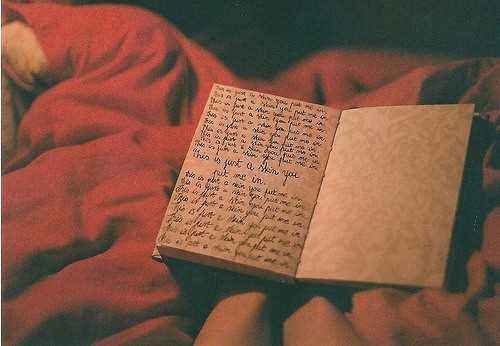 This is just a skin you put me in
This is just a skin you put me in.
This is just a skin you put me in.
This is just a skin you put me in.
This is just a skin you put me in.
This is just a skin you put me in.
This is just a skin you put me in.
This is just a skin you put me in.
This is just a skin you put me in.
This is just a skin you
put me in.
This is just a skin you put me in.
This is just a skin you put me in.
This is just a skin you put me in.
This is just a skin you put me in.
This is just a skin you put me in.
This is just a skin you put me in.
This is just a skin you put me in.
This is just a skin you put me in.